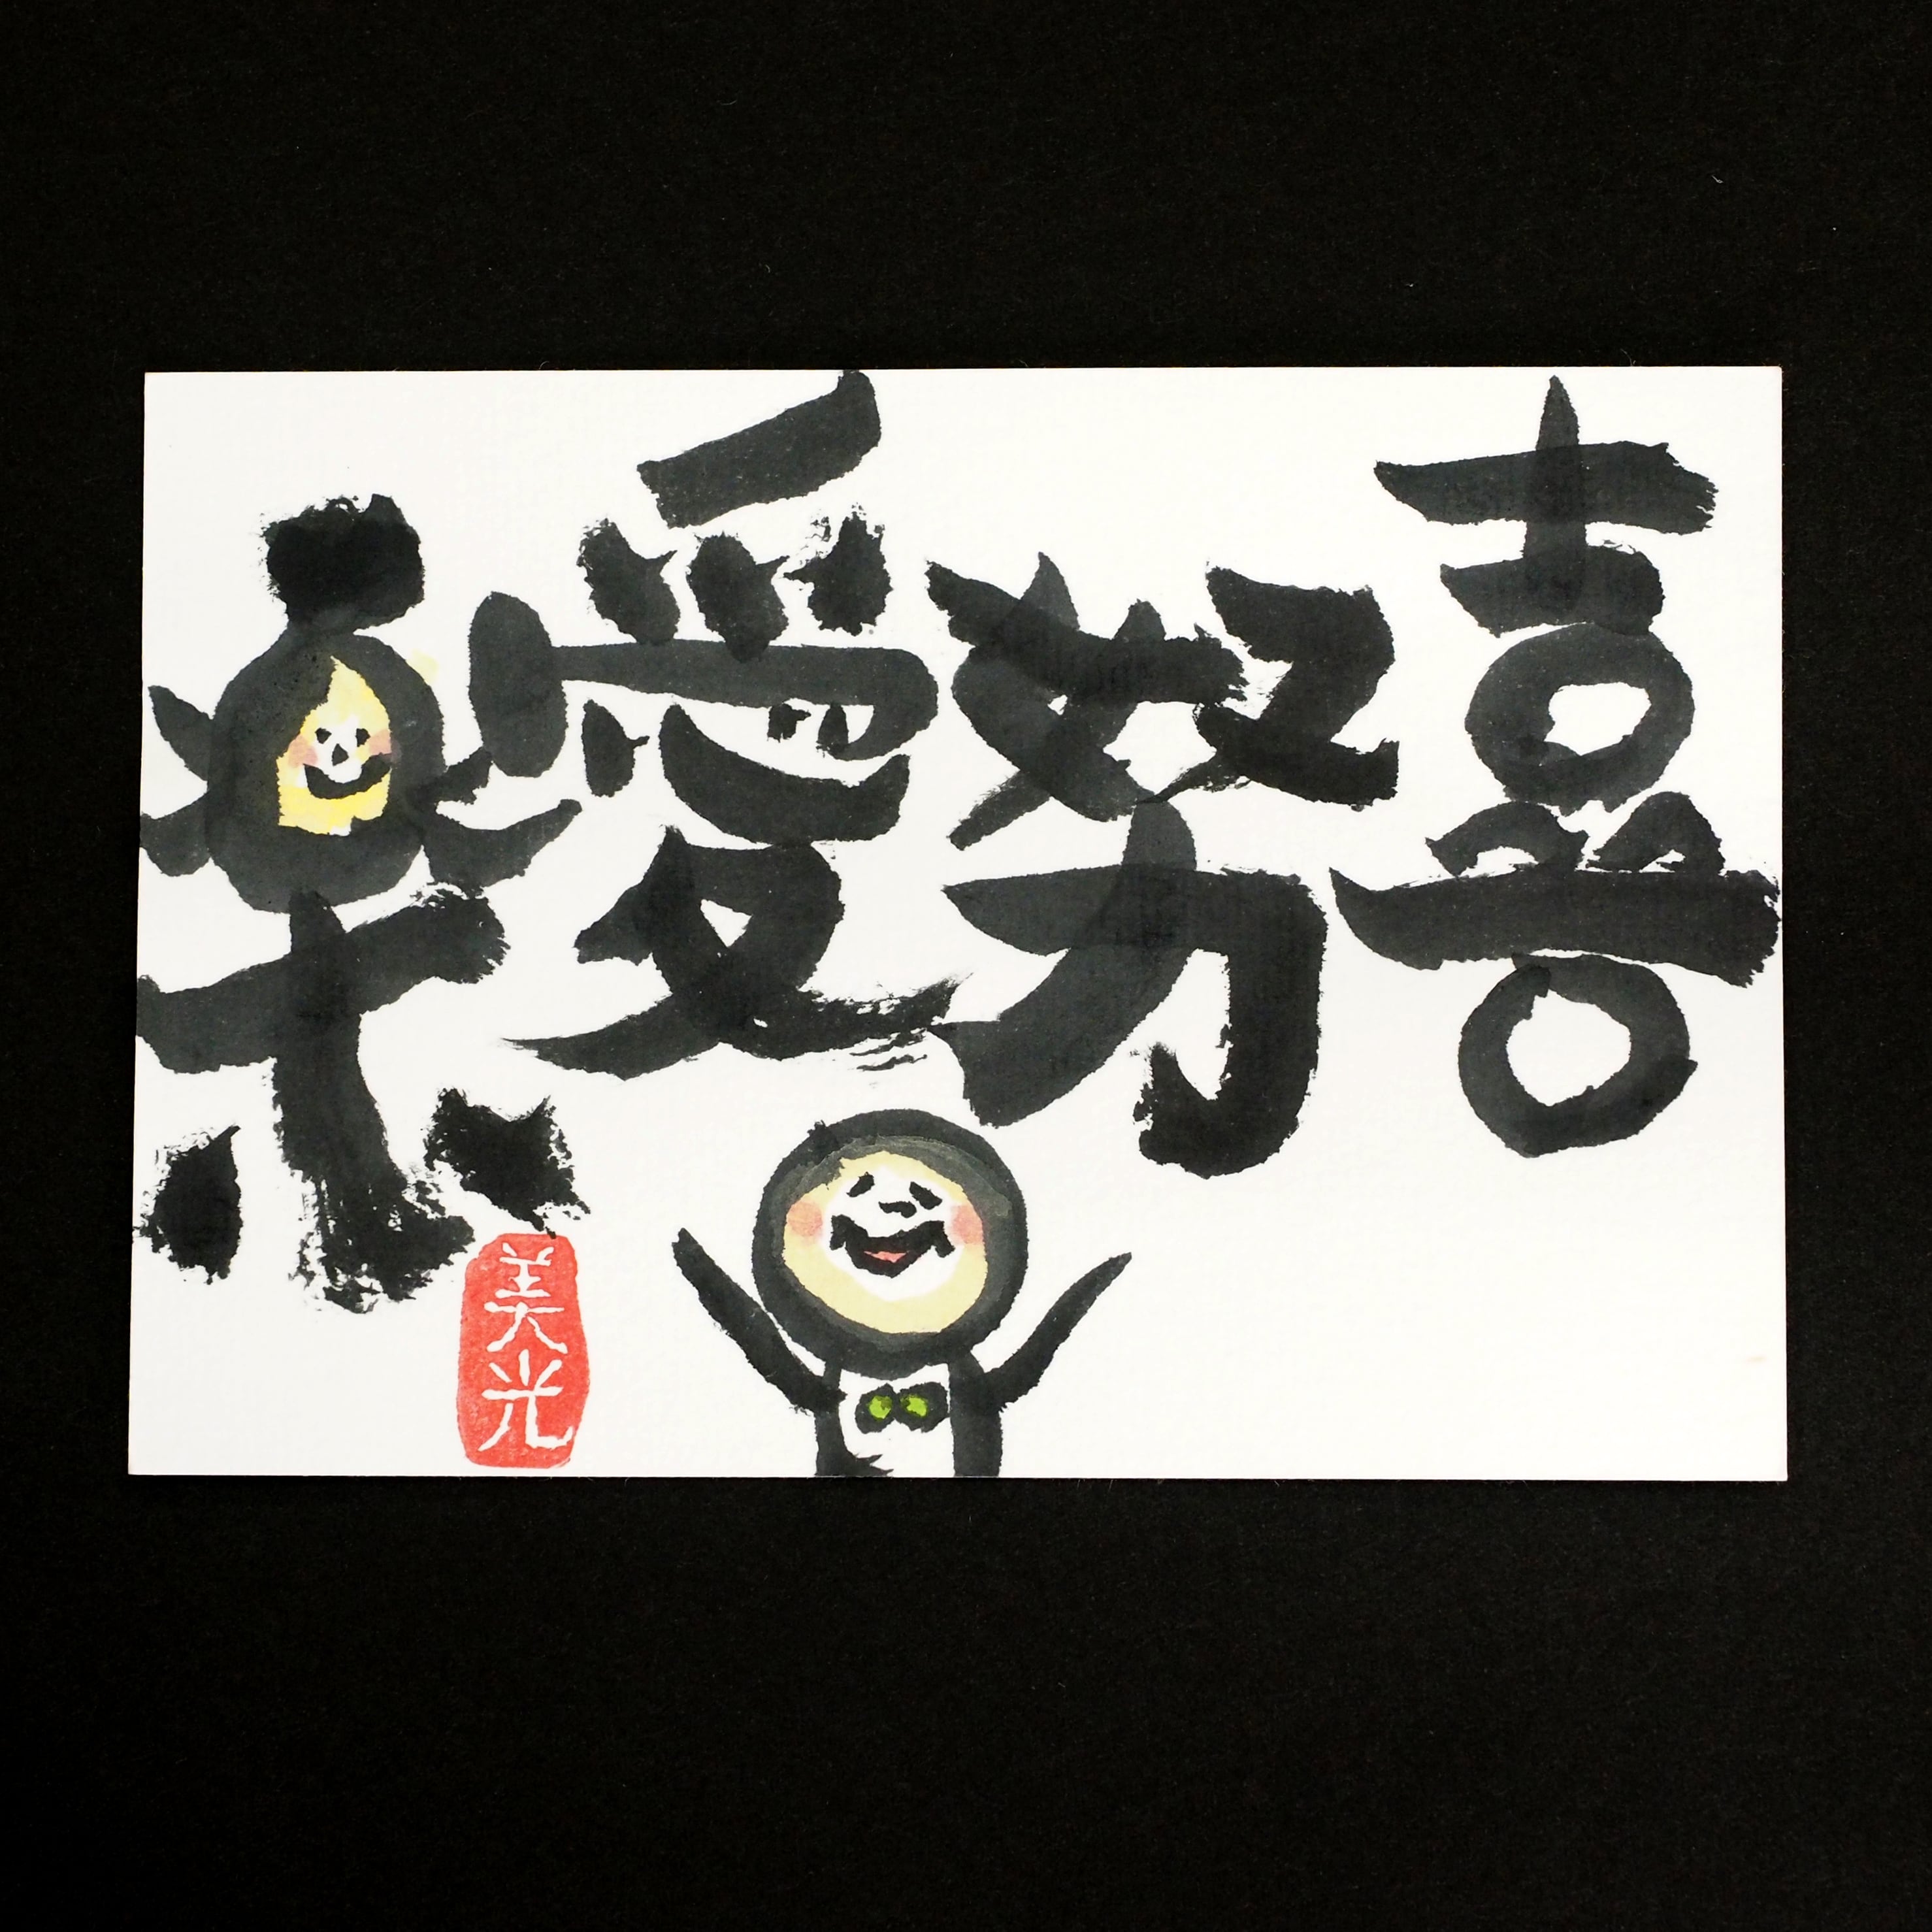 喜努愛楽
美光